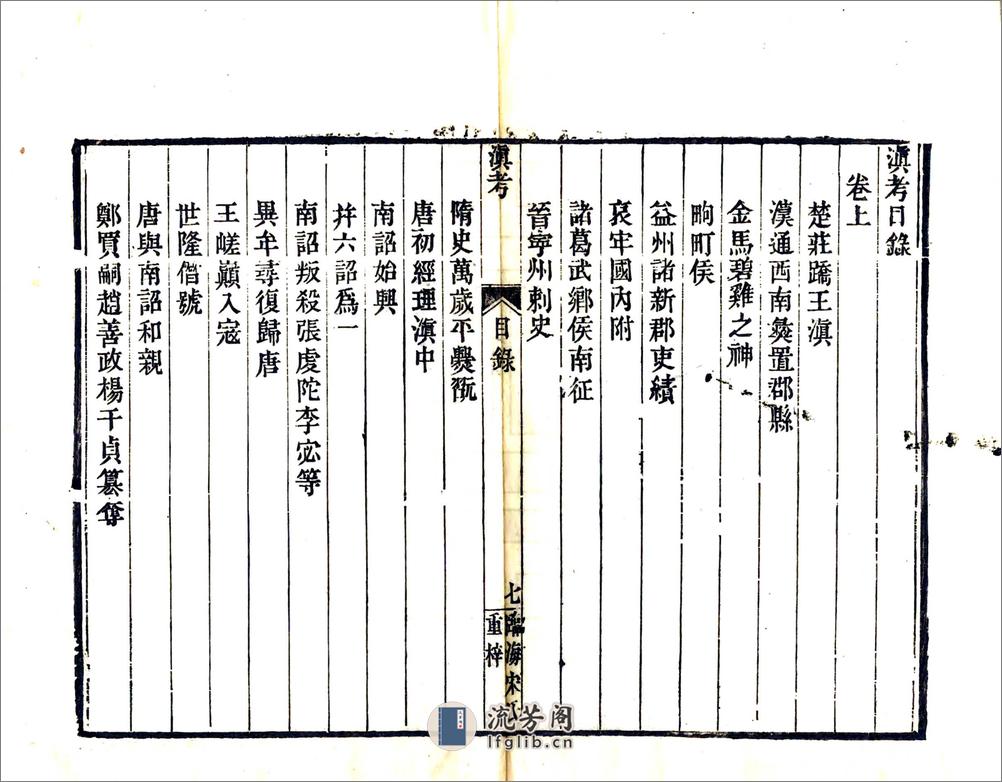 滇考目錄
卷上
楚莊蹻王滇
漢通西南彝置郡縣
金馬碧雞之神
畇町侯
益州諸新郡吏績
哀牢國內附
諸葛武鄉侯南征
晉寧州刺史
滇考
目錄
七
臨海宋氏
重梓
隋史萬歲平爨翫
唐初經理滇中
南詔始興
幷六詔爲一
南詔叛殺張虔陀李宓等
異牟尋復歸唐
王嵯巔入寇
世隆僭號
唐與南詔和親
鄭買嗣趙善政楊干貞簒奪
流芳阁
lfglib.cn